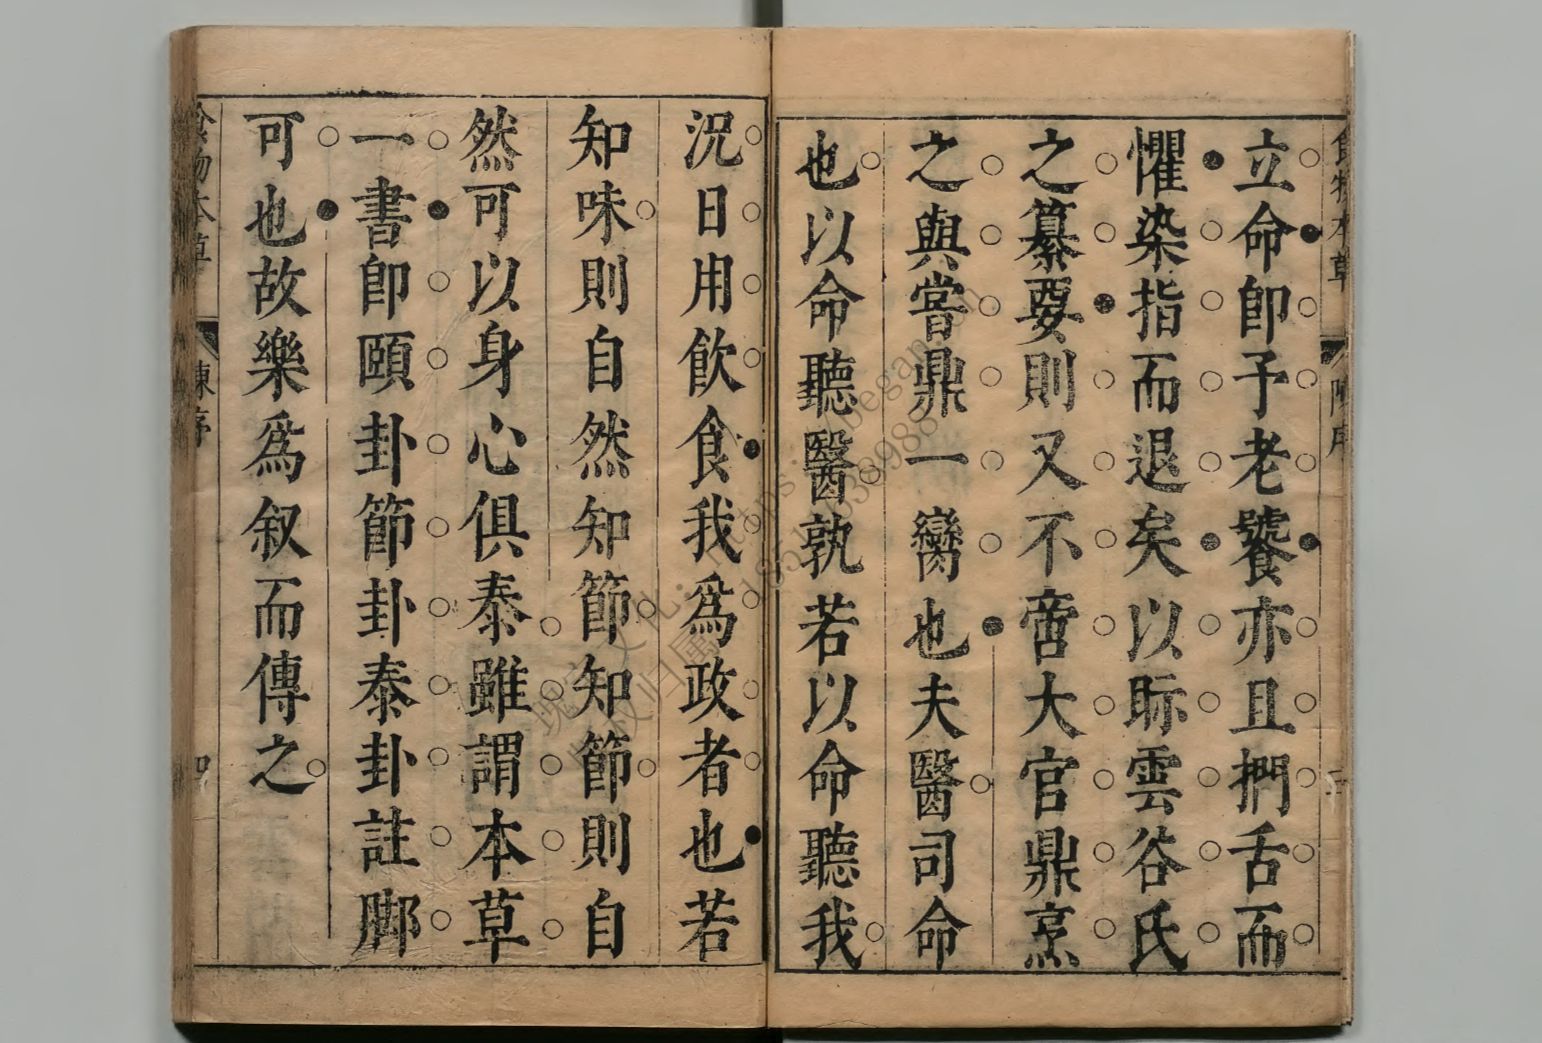 立命卽予老饕亦且捫舌而
懼染指而退矣以眎雲谷氏
之纂要則又不啻大官鼎烹
之與嘗鼎一臠也夫醫司命
也以命聽醫孰若以命聽我
況日用飲食我爲政者也若
知味則自然知節知節則自
然可以身心俱泰雖謂本草
一書卽頤卦節卦泰卦註脚
可也故樂爲叙而傳之
食物本草
陳序